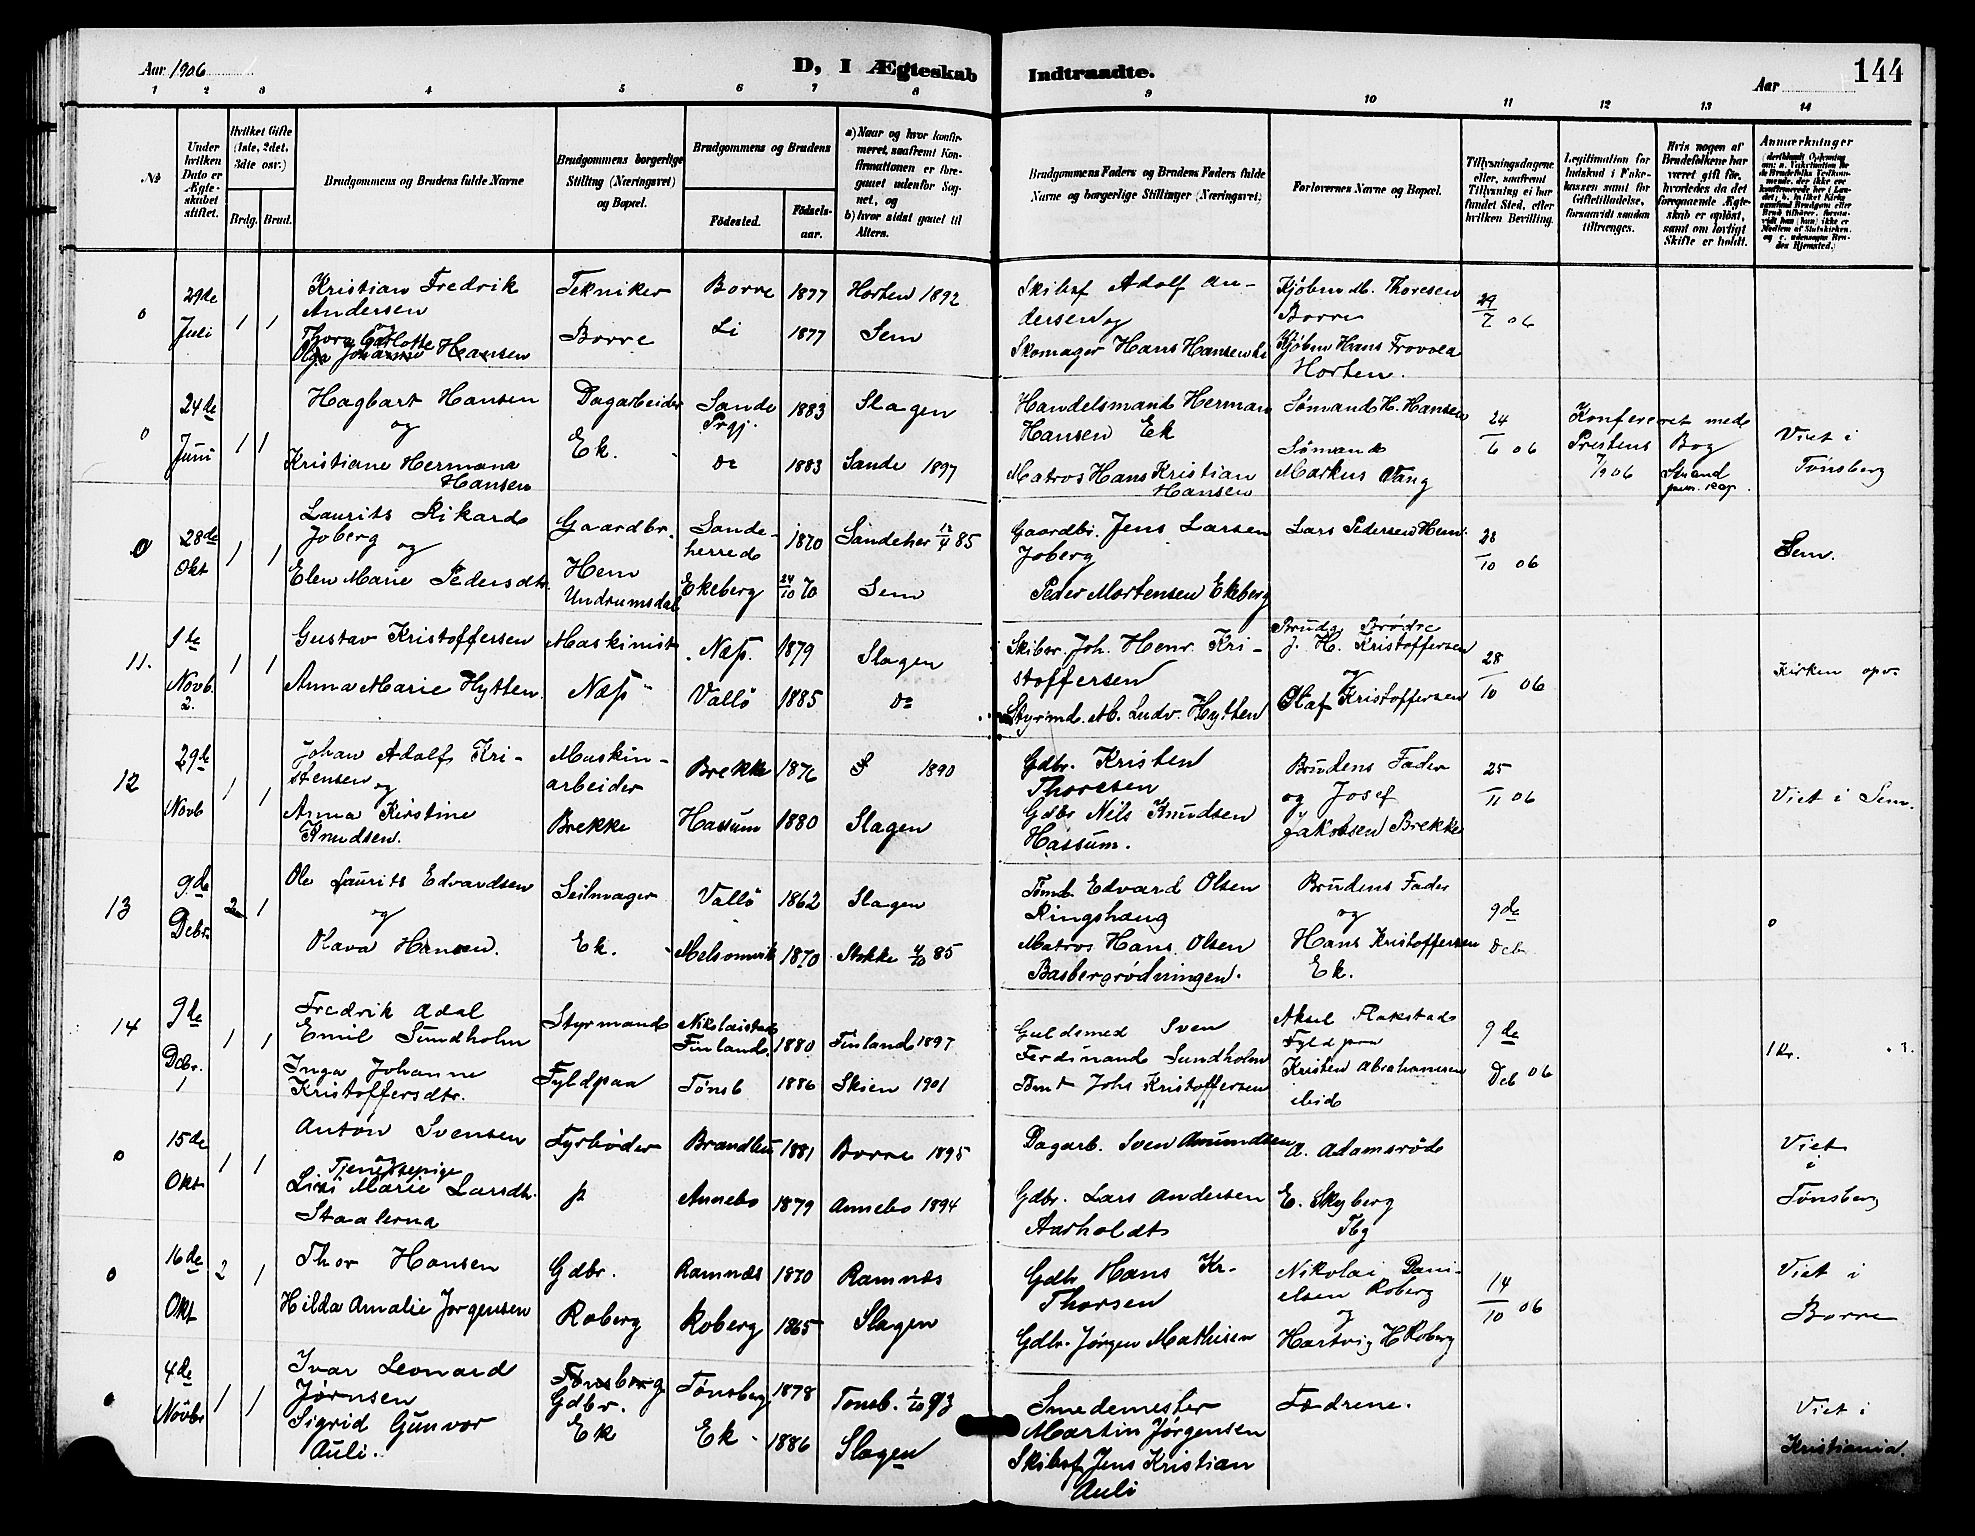 Aar 1906
D, I Ægteskab
Indtraadte.
Aar
144
1 2 3 4 5 6 7 8 9 10 11 12 13 14
№
Under hvilken Dato er Ægteskabet stiftet.
Hvilket Gifte (1ste, 2det, 3die osv.)
Brdg.
Brud.
Brudgommens og Brudens fulde Navne
Brudgommens borgerlige Stilling (Næringsvei) og Bopæl.
Brudgommens og Brudens
Fødested.
Fødsels-aar.
a) Naar og hvor konfirmeret, saafremt Konfirmationen er foregaaet udenfor Sognet, og
b) hvor sidst gaaet til Alters.
Brudgommens Faders og Brudens Faders fulde Navne og borgerlige Stillinger (Næringsvei)
Forlovernes Navne og Bopæl.
Tillysningsdagene eller, saafremt Tillysning ei har fundet Sted, efter hvilken Bevilling.
Legitimation for Indskud i Enkekassen samt for Giftetilladelse, forsaavidt saadan tiltrænges.
Hvis nogen af Brudefolkene har været gift før, hvorledes da det foregaaende Ægteskab er opløst, samt om lovligt Skifte er holdt.
Anmærkninger
0
29de Juli
1 1
Kristian Fredrik Andersen
og
Thora Carlotte
Olga Johanne Hansen
Tekniker
Borre
Borre 1877 Horten 1892
Li 1877 Sem
Skibsf Adolf Andersen og
Skomager Hans Hansen Li
Kjøbm M. Thoresen
Borre
Kjøbm Hans
Horten.
29/7 06
0
24de Juni
1 1
Hagbart Hansen
og
Kristiane Hermana Hansen
Dagarbeider
Ek.
Sande Prgj. 1883 Slagen
do 1883 Sande 1897
Handelsmand Herman Hansen Ek
Matros Hans Kristian Hansen
Sømand H. Hansen
Sømand
Markus Vang
24/6 06
Konfereret med Prestens Bog
7/9 06
Viet i Tønsberg
0
28de Okt
1 1
Laurits Rikard Joberg
og
Elen Marie Pedersdtr.
Gaardbr.
Hem Undrumsdal
Sandeherred 1870 Sandeher 12/4 85
Ekeberg 24/10 70 Sem
Gaardbr. Jens Larsen Joberg
Peder Mortensen Ekeberg
Lars Pedersen Hem.
28/10 06
Sem.
11.
1te Novb. 2.
1 1
Gustav Kristoffersen
Anna Marie Hytten.
Maskinist
Næs
Næs. 1879 Slagen
Vallö 1885 do
Skibsr. Joh. Henr. Kristoffersen
Styrmd. M. Ludv. Hytten
Brudg Brødre
J. H. Kristoffersen
og
Olaf Kristoffersen
28/10 06
Kirken opv.
12
29de Novb
1 1
Johan Adolf Kristensen
og
Anna Kirstine Knudsen.
Maskinarbeider
Brekke
Brekke 1876 S 1890
Hassum 1880 Slagen
Gdbr. Kristen Thoresen
Gdbr Nils Knudsen Hassum.
Brudens Fader
og Josef
Jakobsen Brekke
25/11 06
Viet i Sem.
13
9de Debr.
2 1
Ole Laurits Edvardsen
og
Olava Hansen.
Seilmager
Ek.
Vallö 1862 Slagen
Melsomvik 1870 Stokke 4/10 85
Tømd. Edvard Olsen Ringshaug
Matros Hans Olsen
Basbergrødningen.
Brudens Fader
og
Hans Kristoffersen
Ek.
9de Deb
0
14
9de Debr. 1
1 1
Fredrik Adal
Emil Sundholm
Inga Johanne Kristoffersdtr.
Styrmand
Fyldpaa
Nikolaistad Finland 1880 Finland 1897
Tønsb 1886 Skien 1901
Guldsmed Sven Ferdinand Sundholm
Tømd Johs Kristoffersen
Aksel Flakstad
Fyldpaa
Kristen Abrahamsen
ibid
9de Deb 06
1 kr.
0
15de Okt
1 1
Anton Svensen
og
Tjenestepige
Lisi Marie Larsdtr.
Staalerna
Fyrbøder
Brandbu 1881 Borre 1895
Annebo 1879 Annebo 1894
Dagarb. Sven Amundsen
Gdbr. Lars Andersen Aarholdt
A. Adamsrød
E. Skyberg
Tbg
Viet i Tønsberg
0
16de Okt
2 1
Thor Hansen
Hilda Amalie Jørgensen
Gdbr.
Roberg
Ramnæs 1870 Ramnæs
Roberg 1865 Slagen
Gdbr Hans Kr. Thorsen
Gdbr. Jørgen Mathisen
Nikolai Danielsen Roberg
og
Hartvig H Roberg
14/10 06
Viet i Borre
0
4de Novbr
1 1
Ivar Leonard Jørnsen
Sigrid Gunvor Auli.
Tønsberg
Gdbr.
Ek
Tønsberg 1878 Tønsb. 1/10 93
Ek. 1886 Slagen
Smedemester Martin Jørgensen
Skibsf Jens Kristian Auli
Fædrene.
Viet i Kristiania.